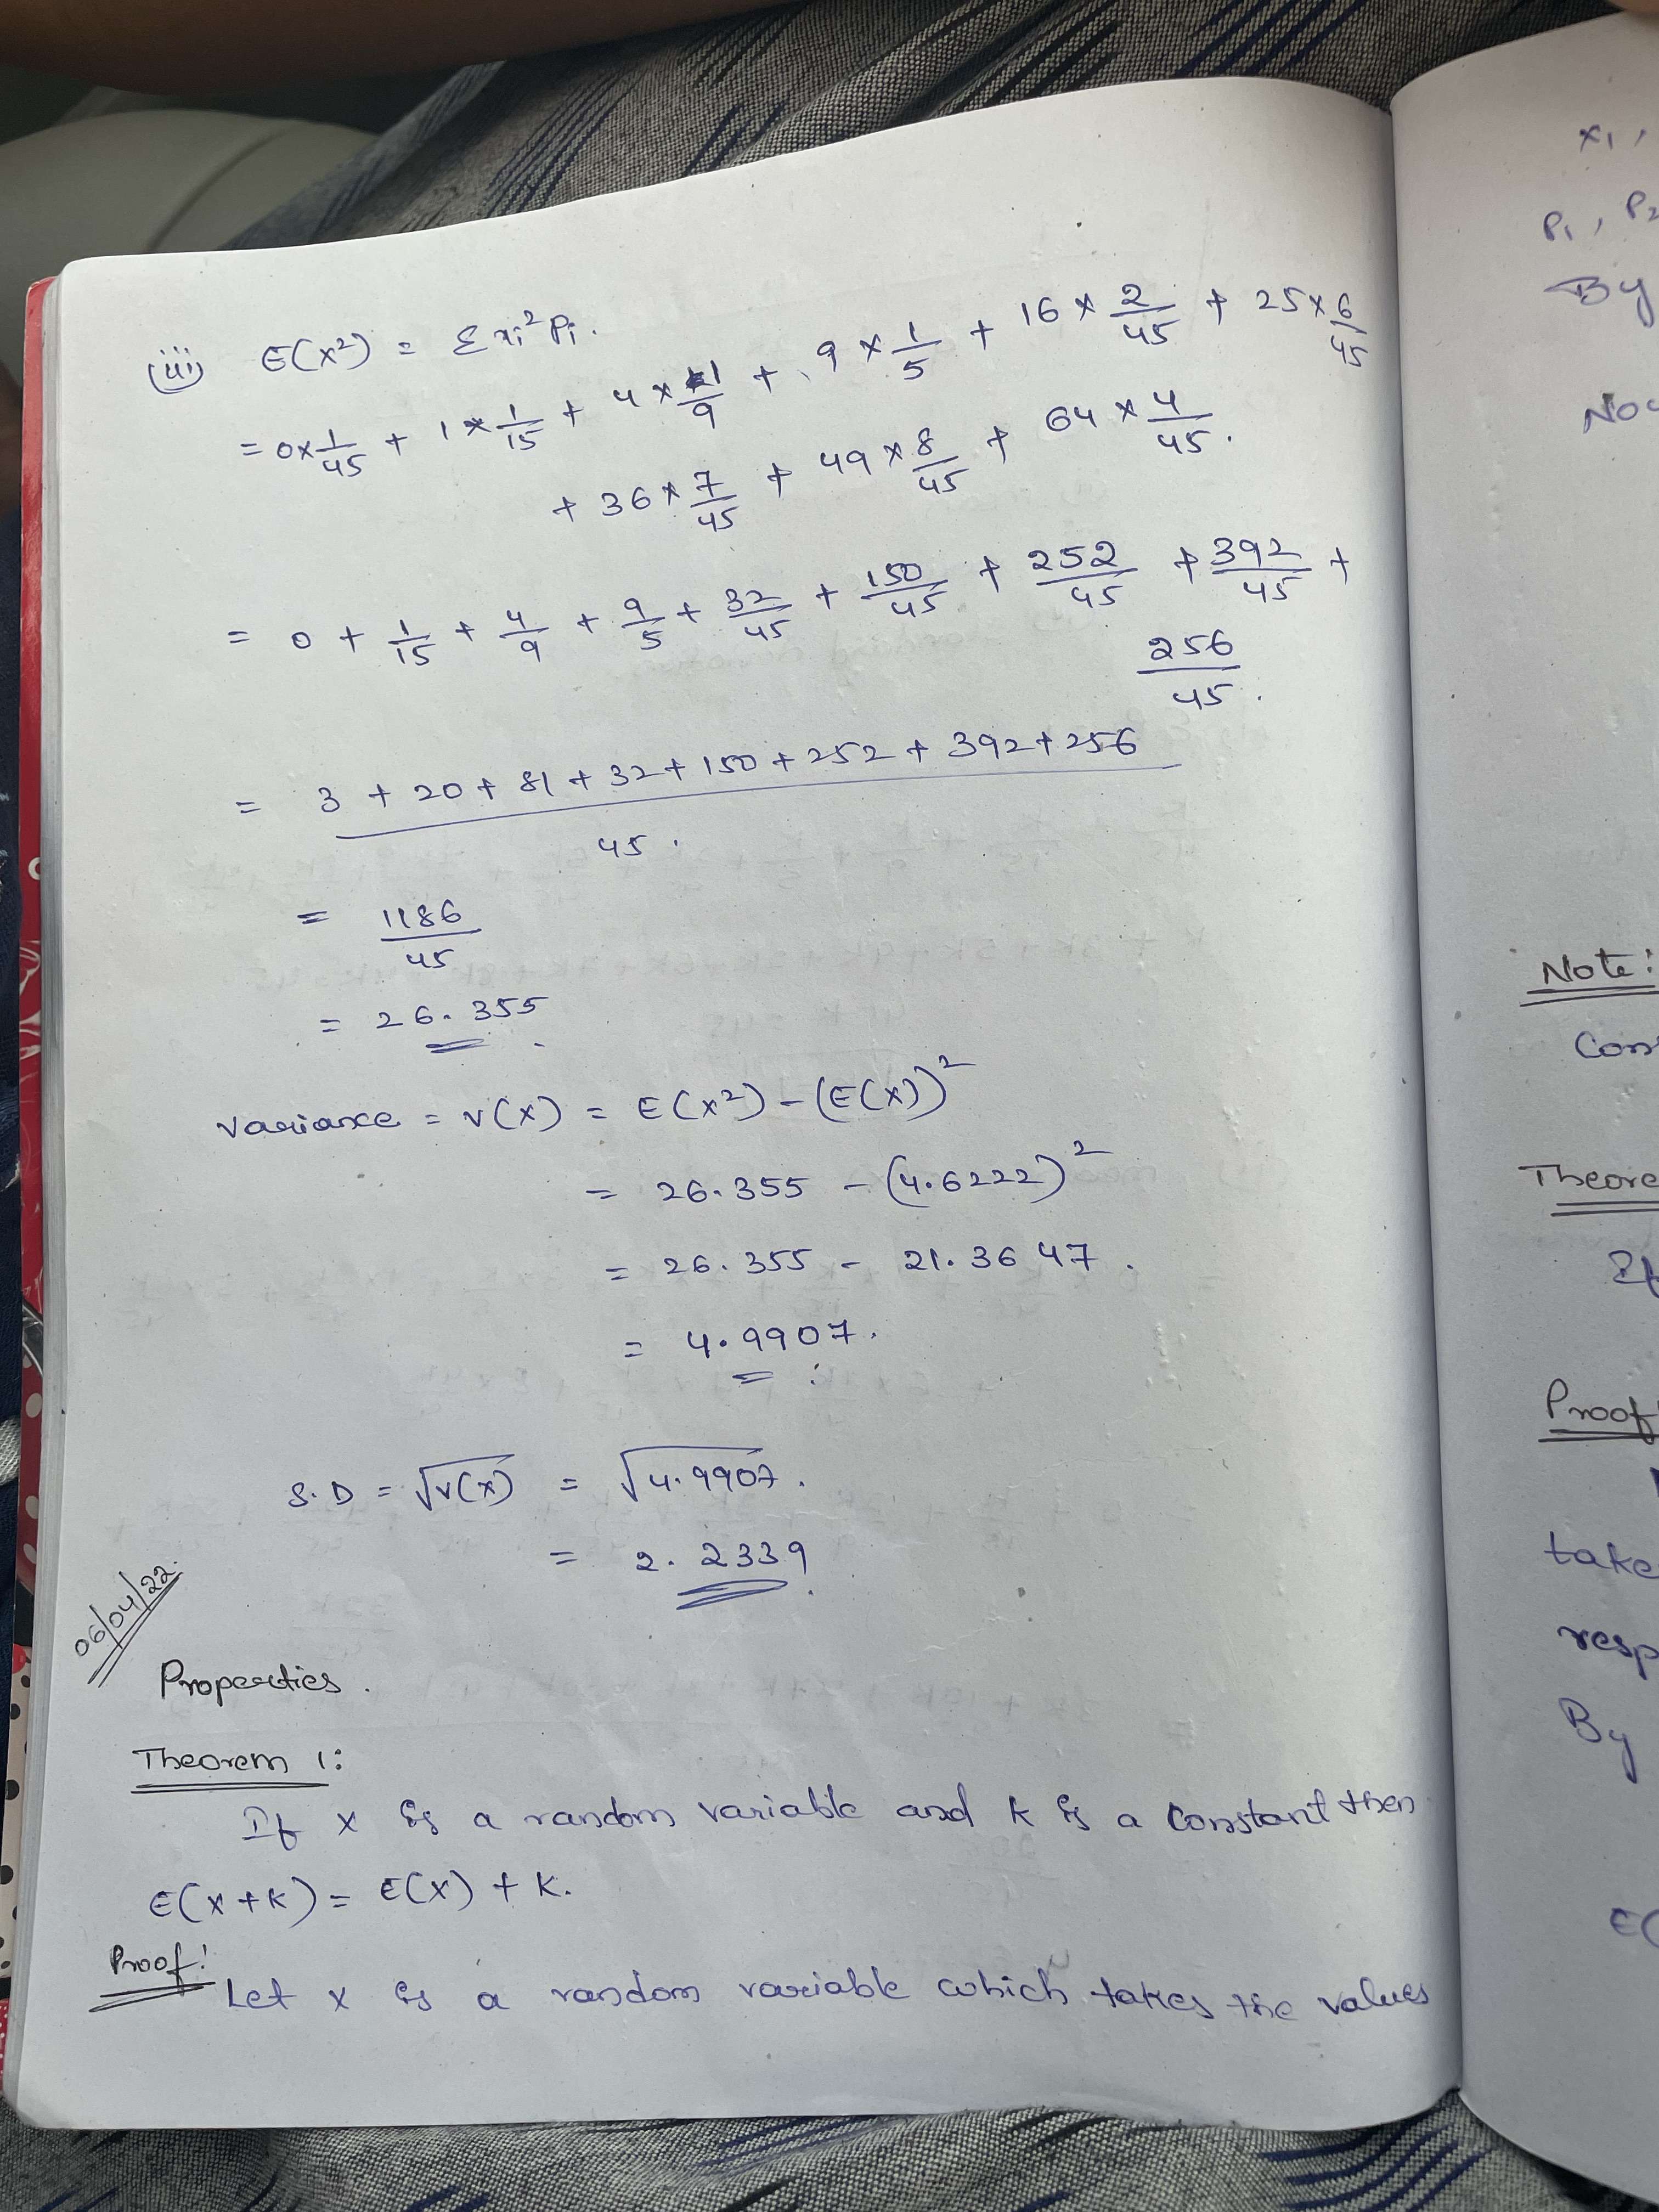 (iii) E(x²) = Σxi²Pi.
= 0×1/45 + 1×1/15 + 4×1/9 + 9×1/5 + 16×2/45 + 25×6/45
+ 36×7/45 + 49×8/45 + 64×4/45.
= 0 + 1/15 + 4/9 + 9/5 + 32/45 + 150/45 + 252/45 + 392/45 +
256/45.
= 3 + 20 + 81 + 32 + 150 + 252 + 392 + 256 / 45.
= 1186/45
= 26.355
Variance = V(x) = E(x²) - (E(x))²
= 26.355 - (4.6222)²
= 26.355 - 21.3647.
= 4.9907.
S.D = √V(x) = √4.9907.
= 2.2339
06/04/22.
Properties.
Theorem 1:
If x is a random variable and k is a constant then
E(x+k) = E(x) + k.
Proof:
Let x is a random variable which takes the values
x1,
P1, P2
By
Note:
Theore
If
Proof
take
resp
By
E(